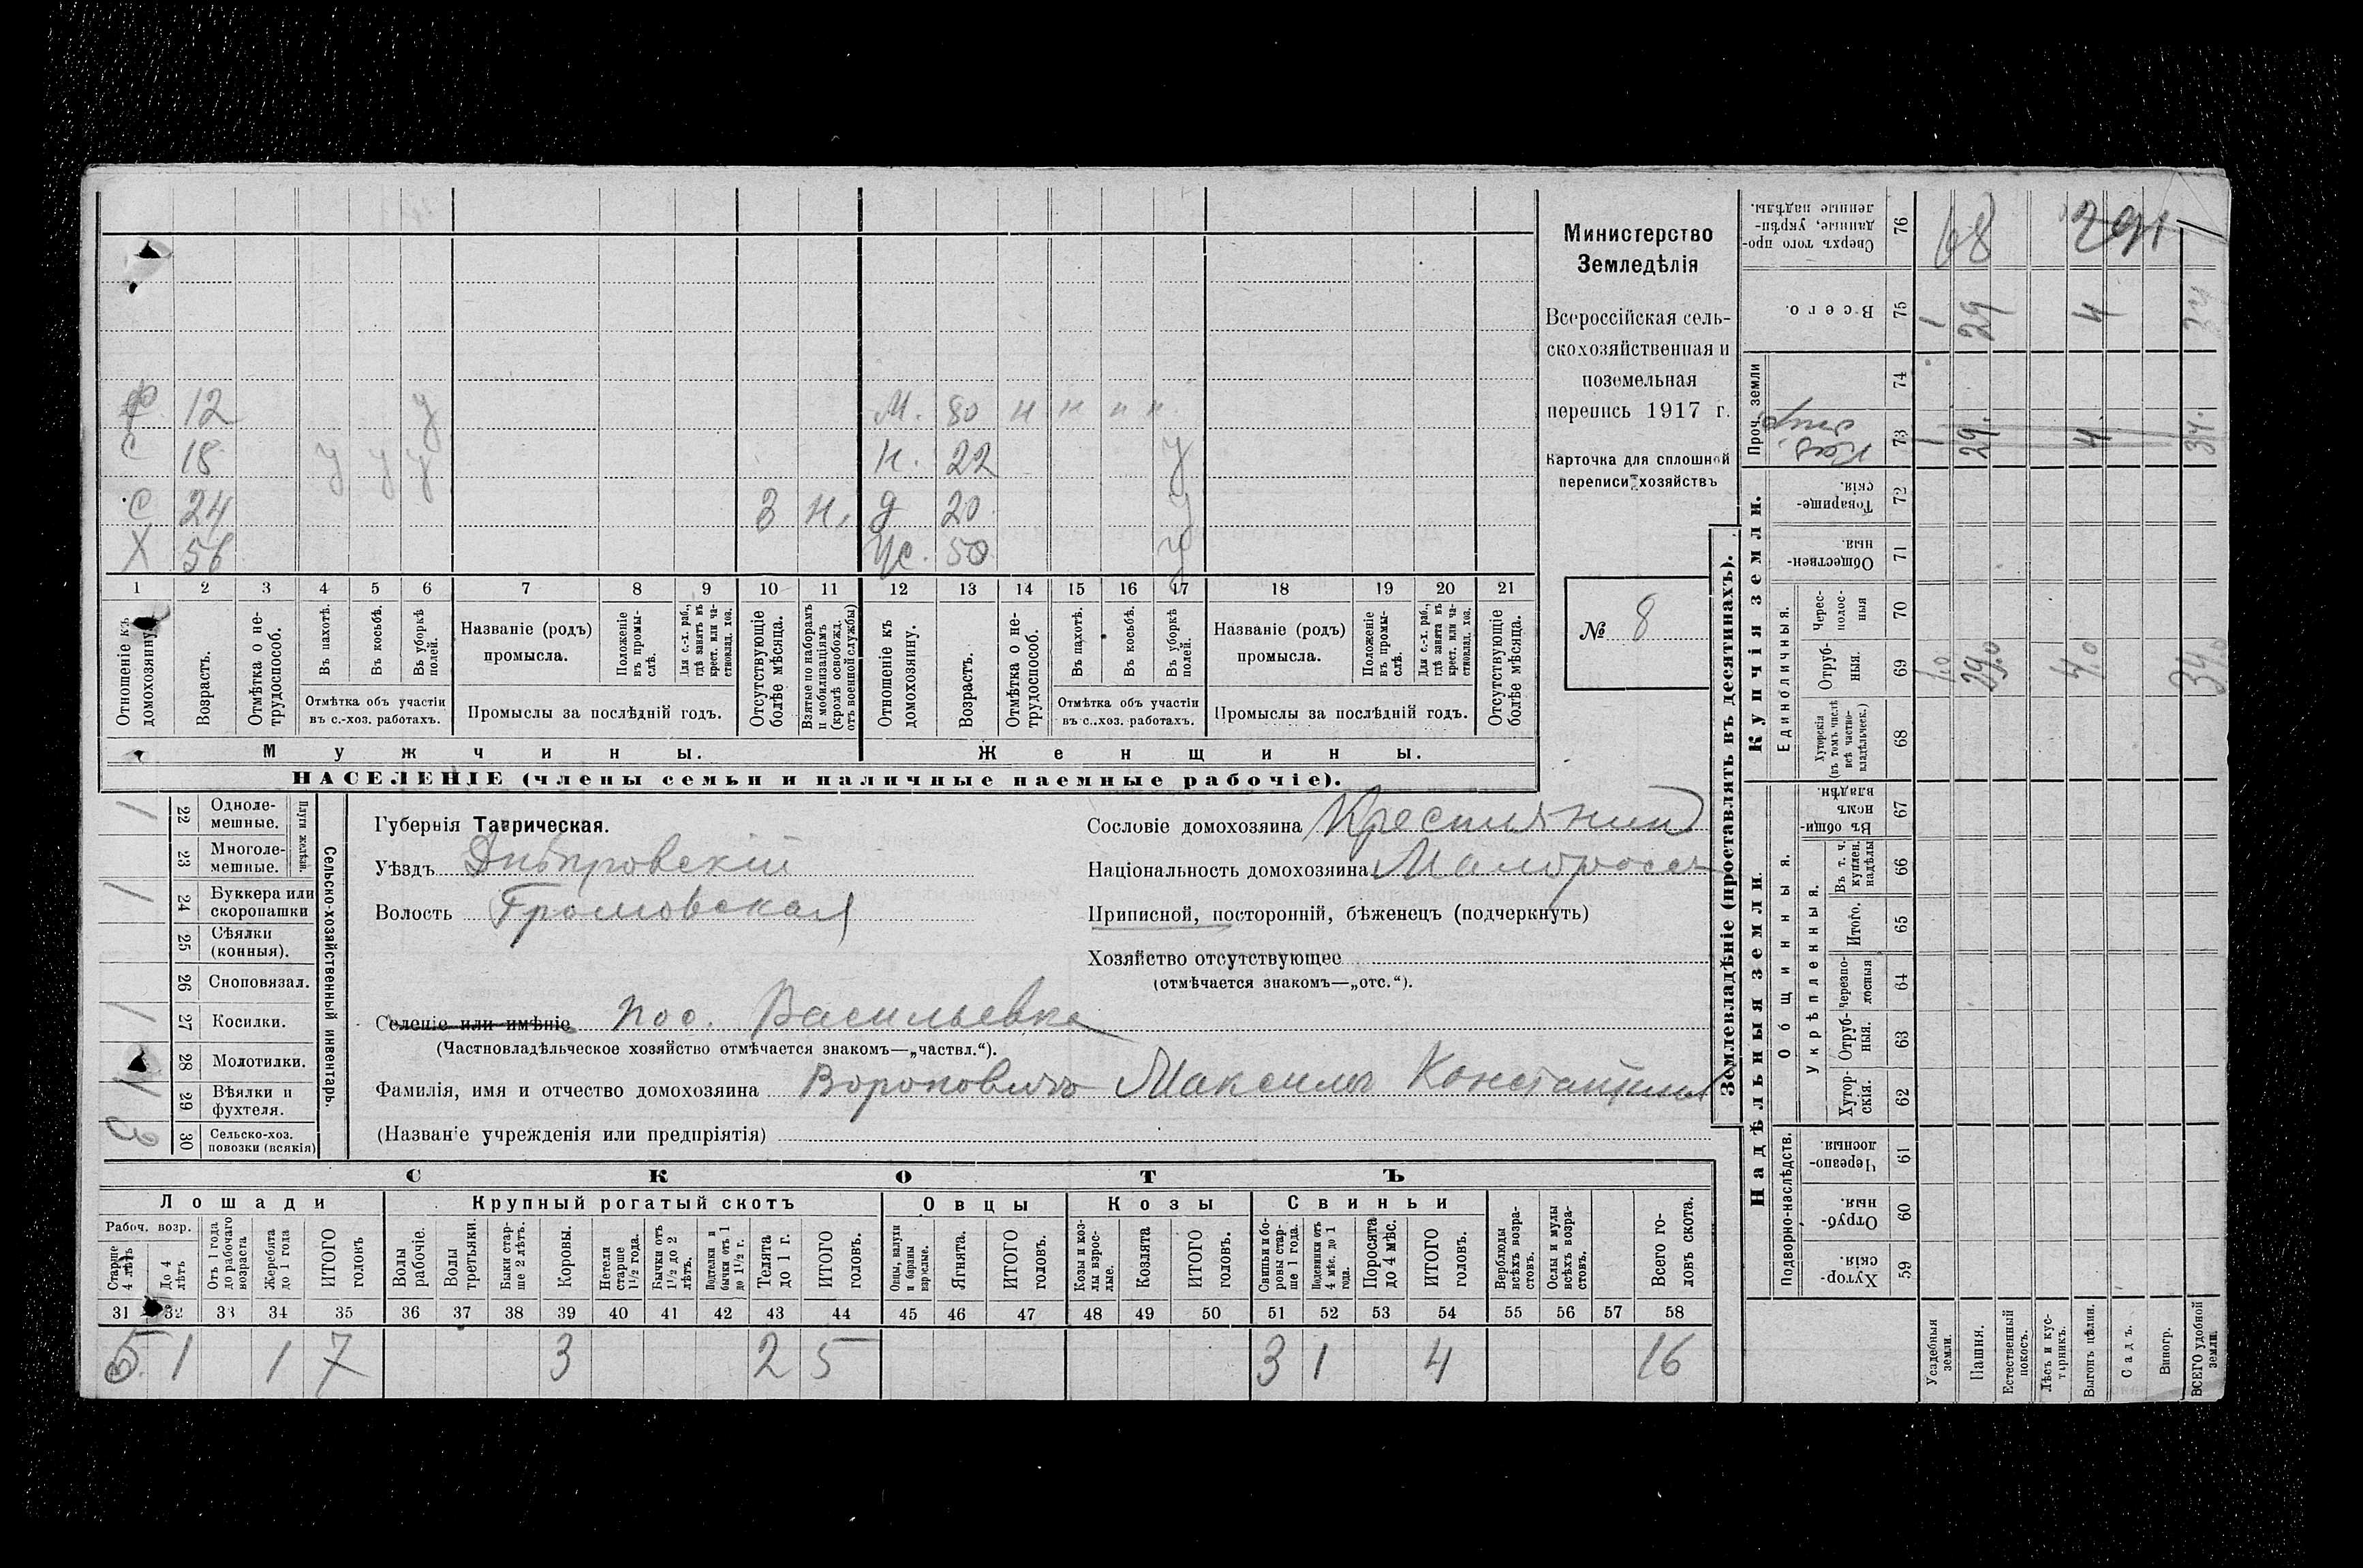 Ф 12 У М. 80 н н н н
С 18 У У У Н. 22 У
С 24 3 Н. Д 20 У
Х 56 Ж. 50 У
1 2 3 4 5 6 7 8 9 10 11 12 13 14 15 16 17 18 19 20 21
Отношеніе къ домохозяину.
Возрастъ.
Отмѣтка о нетрудоспособ.
Въ пахотѣ.
Въ косьбѣ.
Въ уборкѣ полей.
Отмѣтка объ участіи въ с.-хоз. работахъ.
Названіе (родъ) промысла.
Положеніе въ промыслѣ.
Для с.-х. раб., гдѣ занятъ въ крест. или частновлад. хоз.
Промыслы за послѣдній годъ.
Отсутствующіе болѣе мѣсяца.
Взятые по наборамъ и мобилизаціямъ (кромѣ освобожд. отъ военной службы)
Отношеніе къ домохозяину.
Возрастъ.
Отмѣтка о нетрудоспособ.
Въ пахотѣ.
Въ косьбѣ.
Въ уборкѣ полей.
Отмѣтка объ участіи въ с.-хоз. работахъ.
Названіе (родъ) промысла.
Положеніе въ промыслѣ.
Для с.-х. раб., гдѣ занята въ крест. или частновлад. хоз.
Промыслы за послѣдній годъ.
Отсутствующіе болѣе мѣсяца.
Мужчины. Женщины.
НАСЕЛЕНІЕ (члены семьи и наличные наемные рабочіе).
Министерство
Земледѣлія
Всероссійская сель-
скохозяйственная и
поземельная
перепись 1917 г.
Карточка для сплошной
переписи хозяйствъ
№ 8
Сельско-хозяйственный инвентарь.
Плуги желѣзн.
22 Одноле-
мешные. 1
23 Многоле-
мешные.
24 Буккера или
скоропашки 1
25 Сѣялки
(конныя).
26 Сноповязал.
27 Косилки. 1
28 Молотилки.
29 Вѣялки и
фухтеля. 1
30 Сельско-хоз.
повозки (всякія)
Губернія Таврическая.
Уѣздъ Днѣпровскій
Волость Громовская
Селеніе или имѣніе пос. Васильевка
(Частновладѣльческое хозяйство отмѣчается знакомъ—„частвл.“).
Фамилія, имя и отчество домохозяина Вороновичъ Максимъ
(Названіе учрежденія или предпріятія)
Сословіе домохозяина Крестьянин
Національность домохозяина Малороссъ
Приписной, посторонній, бѣженецъ (подчеркнуть)
Хозяйство отсутствующее
(отмѣчается знакомъ—„отс.“).
СКОТЪ
Лошади Крупный рогатый скотъ Овцы Козы Свиньи
Рабоч. возр.
Старше 4 лѣтъ
До 4 лѣтъ
Отъ 1 года до рабочаго возраста
Жеребята до 1 года
ИТОГО головъ
Волы рабочіе.
Волы третьяки.
Быки старше 2 лѣтъ.
Коровы.
Нетели старше 1½ года.
Бычки отъ 1½ до 2 лѣтъ.
Подтелки и бычки отъ 1 до 1½ г.
Телята до 1 г.
ИТОГО головъ.
Овцы, валухи и бараны взрослые.
Ягнята.
ИТОГО головъ.
Козы и козлы взрослые.
Козлята
ИТОГО головъ.
Свиньи и боровы старше 1 года.
Подсвинки отъ 4 мѣс. до 1 года.
Поросята до 4 мѣс.
ИТОГО головъ.
Верблюды всѣхъ возрастовъ.
Ослы и мулы всѣхъ возрастовъ.
Всего головъ скота.
31 32 33 34 35 36 37 38 39 40 41 42 43 44 45 46 47 48 49 50 51 52 53 54 55 56 57 58
5 1 1 7 3 2 5 3 1 4 16
Землевладѣніе (проставлять въ десятинахъ).
Надѣльныя земли. Купчія земли. Проч. земли
Подворно-наслѣдств. Общинныя. Единоличныя.
Укрѣпленныя.
59 Хуторскія.
60 Отрубныя.
61 Черезполосныя
62 Хуторскія.
63 Отрубныя.
64 Черезполосныя
65 Итого.
66 Въ т. ч. куплен. надѣлы
67 Въ общинномъ владѣн.
68 Хуторскія (въ томъ числѣ всѣ частновладѣльческ.)
69 Отрубныя. 1.0 29.0 4.0 34.0
70 Чересполосныя
71 Общественныя.
72 Товарищескія.
73 Каз. 1 29. 4 34.
74
75 Всего. 1 29 4 34
76 Сверхъ того проданные, укрѣпленные надѣлы. 68 291
Усадебныя земли.
Пашня.
Естественный покосъ.
Лѣсъ и кустарникъ.
Выгонъ цѣлин.
Садъ.
Виногр.
ВСЕГО удобной земли.